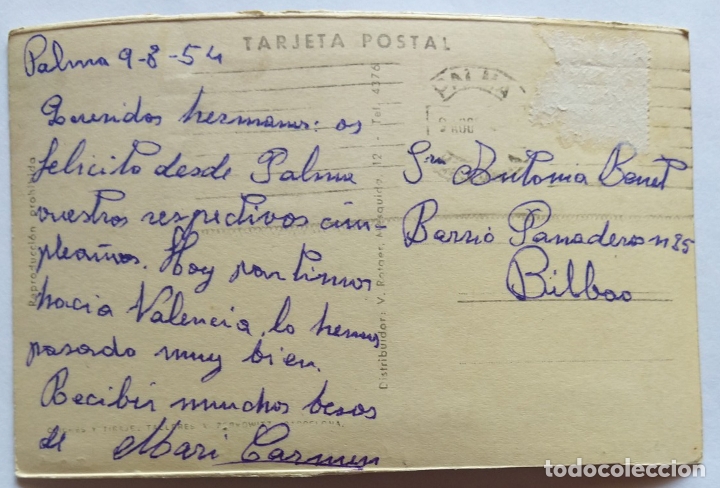 TARJETA POSTAL
Palma 9-8-54
Queridos hermanos: os
felicito desde Palma
vuestros respectivos cum-
pleaños. Hoy partimos
hacia Valencia, lo hemos
pasado muy bien.
Recibir muchos besos
de Mari Carmen
PALMA
Antonia Benet
Barrio Panaderos nº 25
Bilbao
Reproducción prohibida
Distribuidor: V. Rotger, 12 Tel. 4376
TALLERES
BARCELONA
todocoleccion